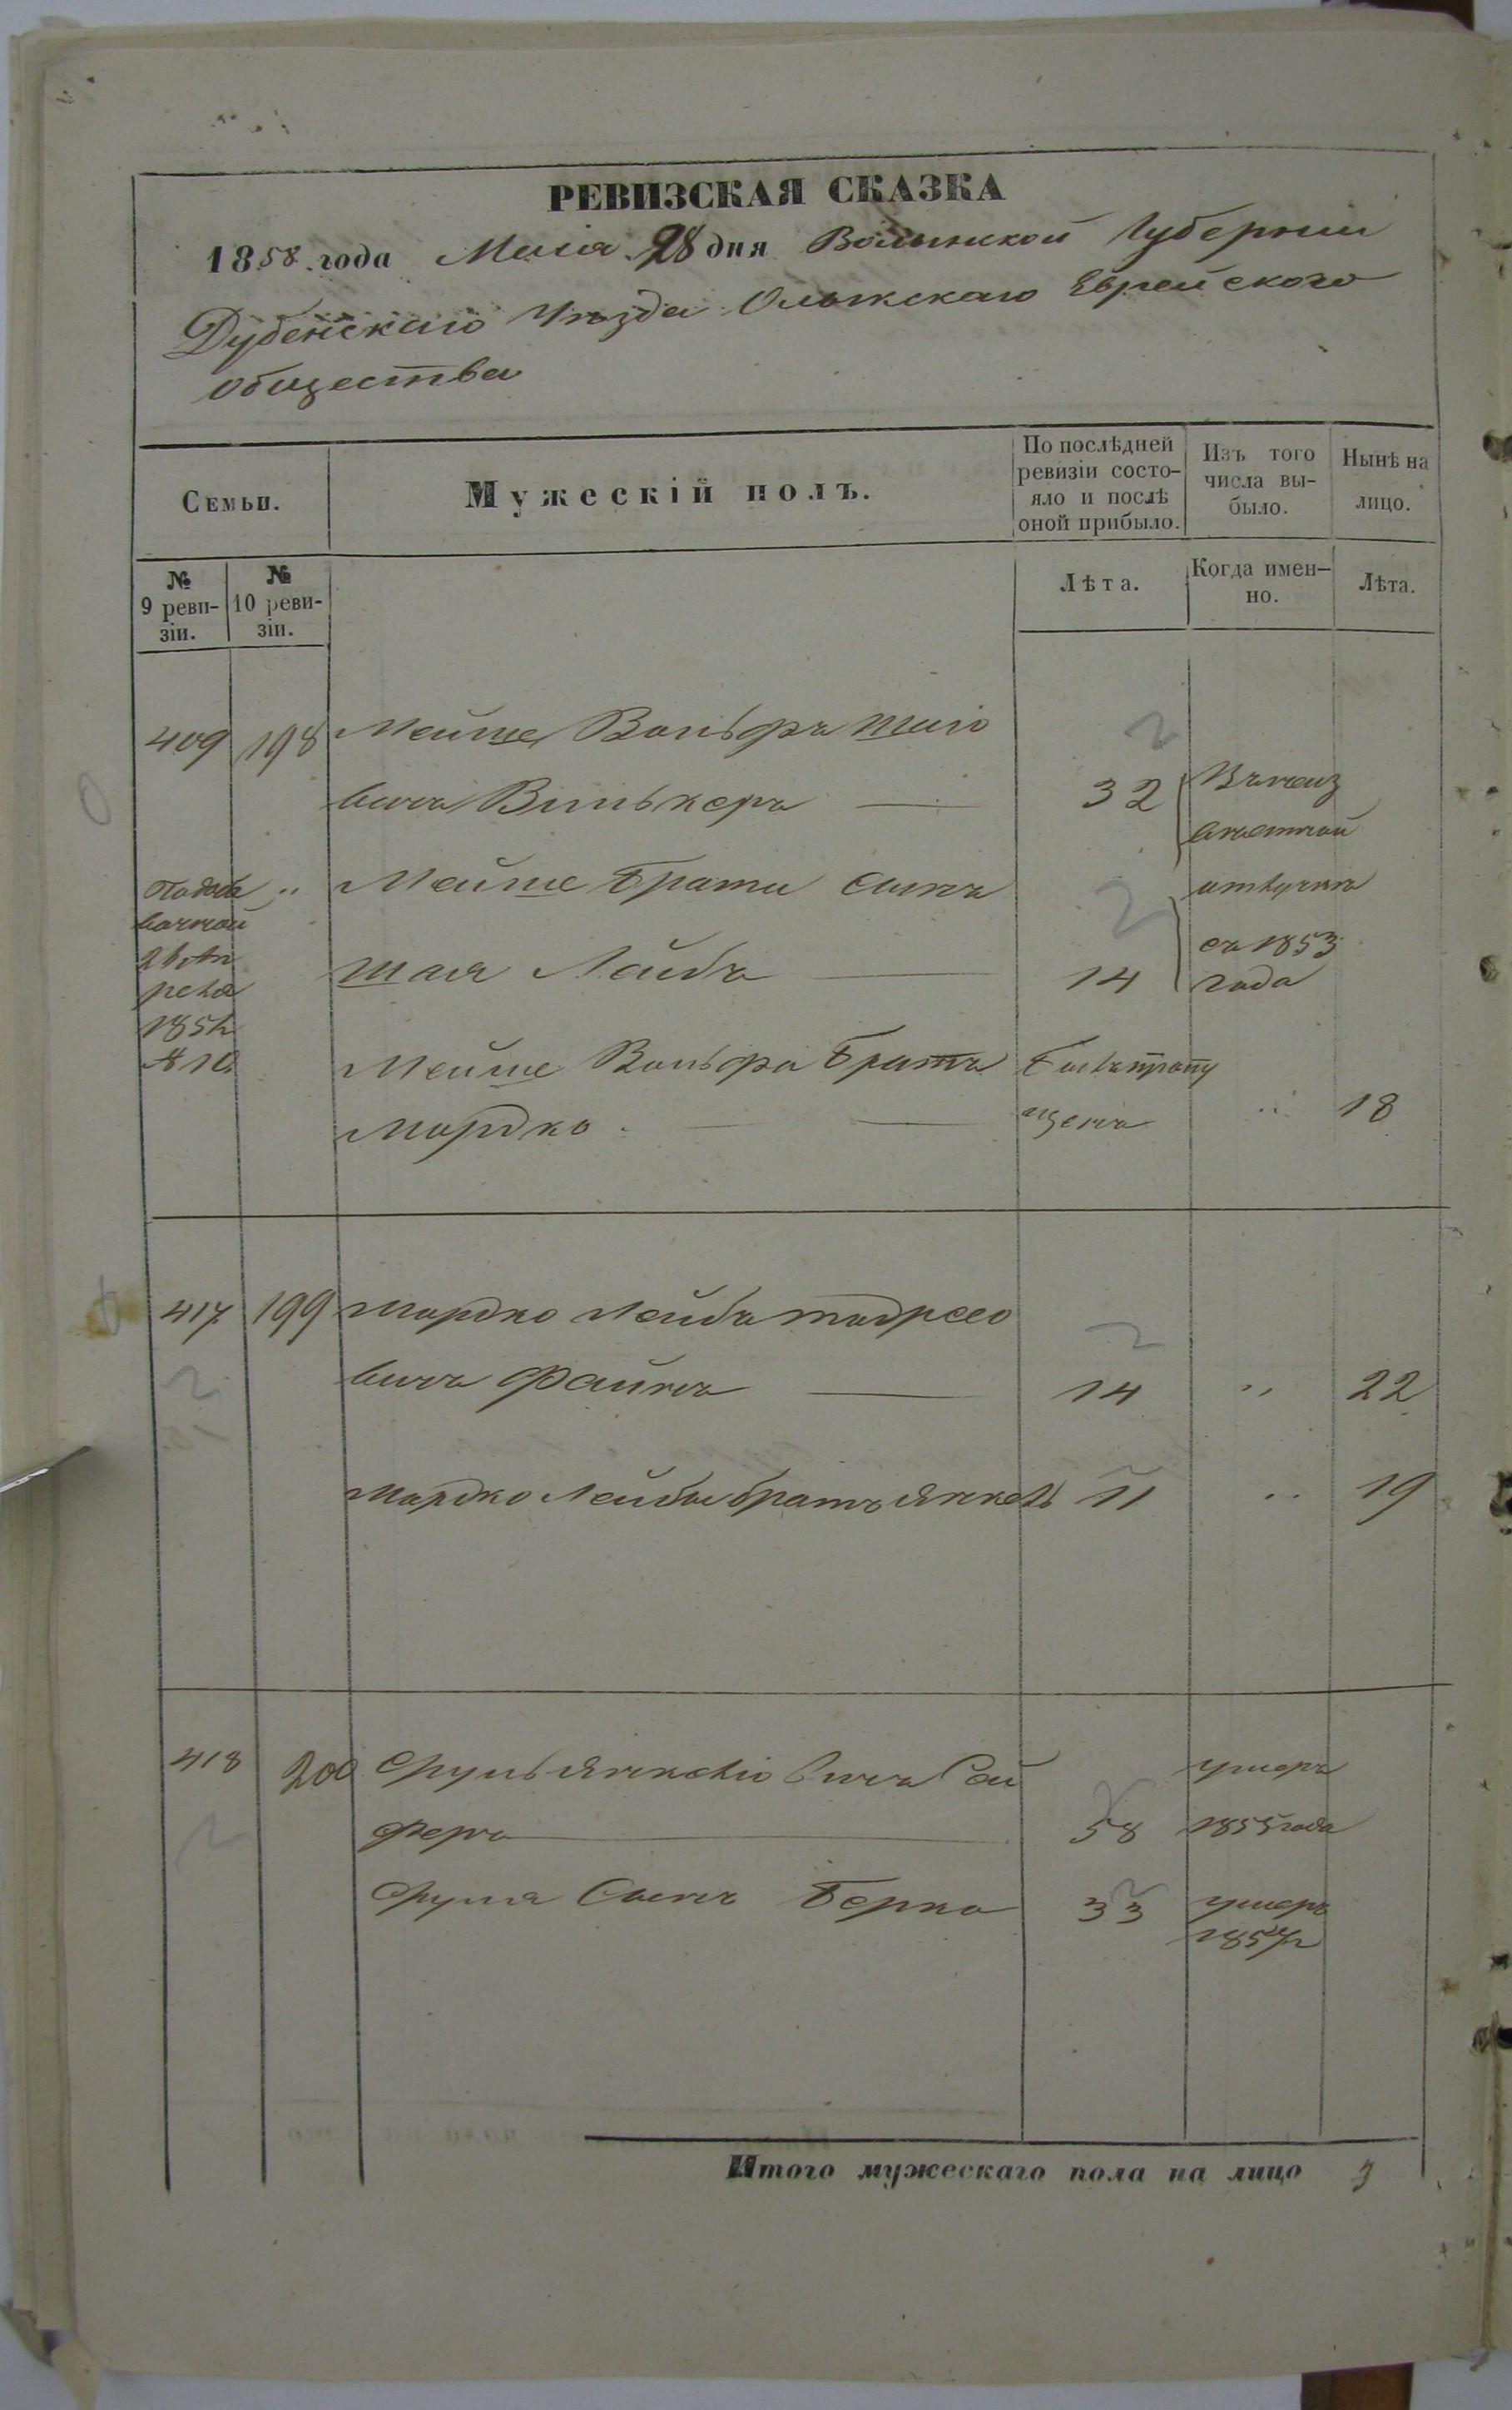 РЕВИЗСКАЯ СКАЗКА
1858 года Маія 28 дня Волынской Губерніи
Дубенскаго Уѣзда Олыкскаго Еврейского
Общества
Семьи.
Мужескій полъ.
По послѣдней ревизіи состо-
яло и послѣ оной прибыло.
Изъ того числа вы-
было.
Нынѣ на лицо.
№ 9 реви-
зіи.
№ 10 реви-
зіи.
Лѣта.
Когда имен-
но.
Лѣта.
409 198 Мейше Вольфъ
вичъ Винькеръ 32
Мейше брата сынъ
Шая Лейбъ 14
съ 1853
года
Мейше Вольфа братъ
Мордко 18
Былъ пропу
щенъ
417 199 Мордко Лейбъ
вичъ Файнъ 14 „ 22
Мордко Лейбы братъ Янкель 11 „ 19
418 200 Сруль Янкеліовичъ Сой
феръ 58
умеръ
1855 года
Сруля Сынъ Берко 33
умеръ
Итого мужескаго пола на лицо 3